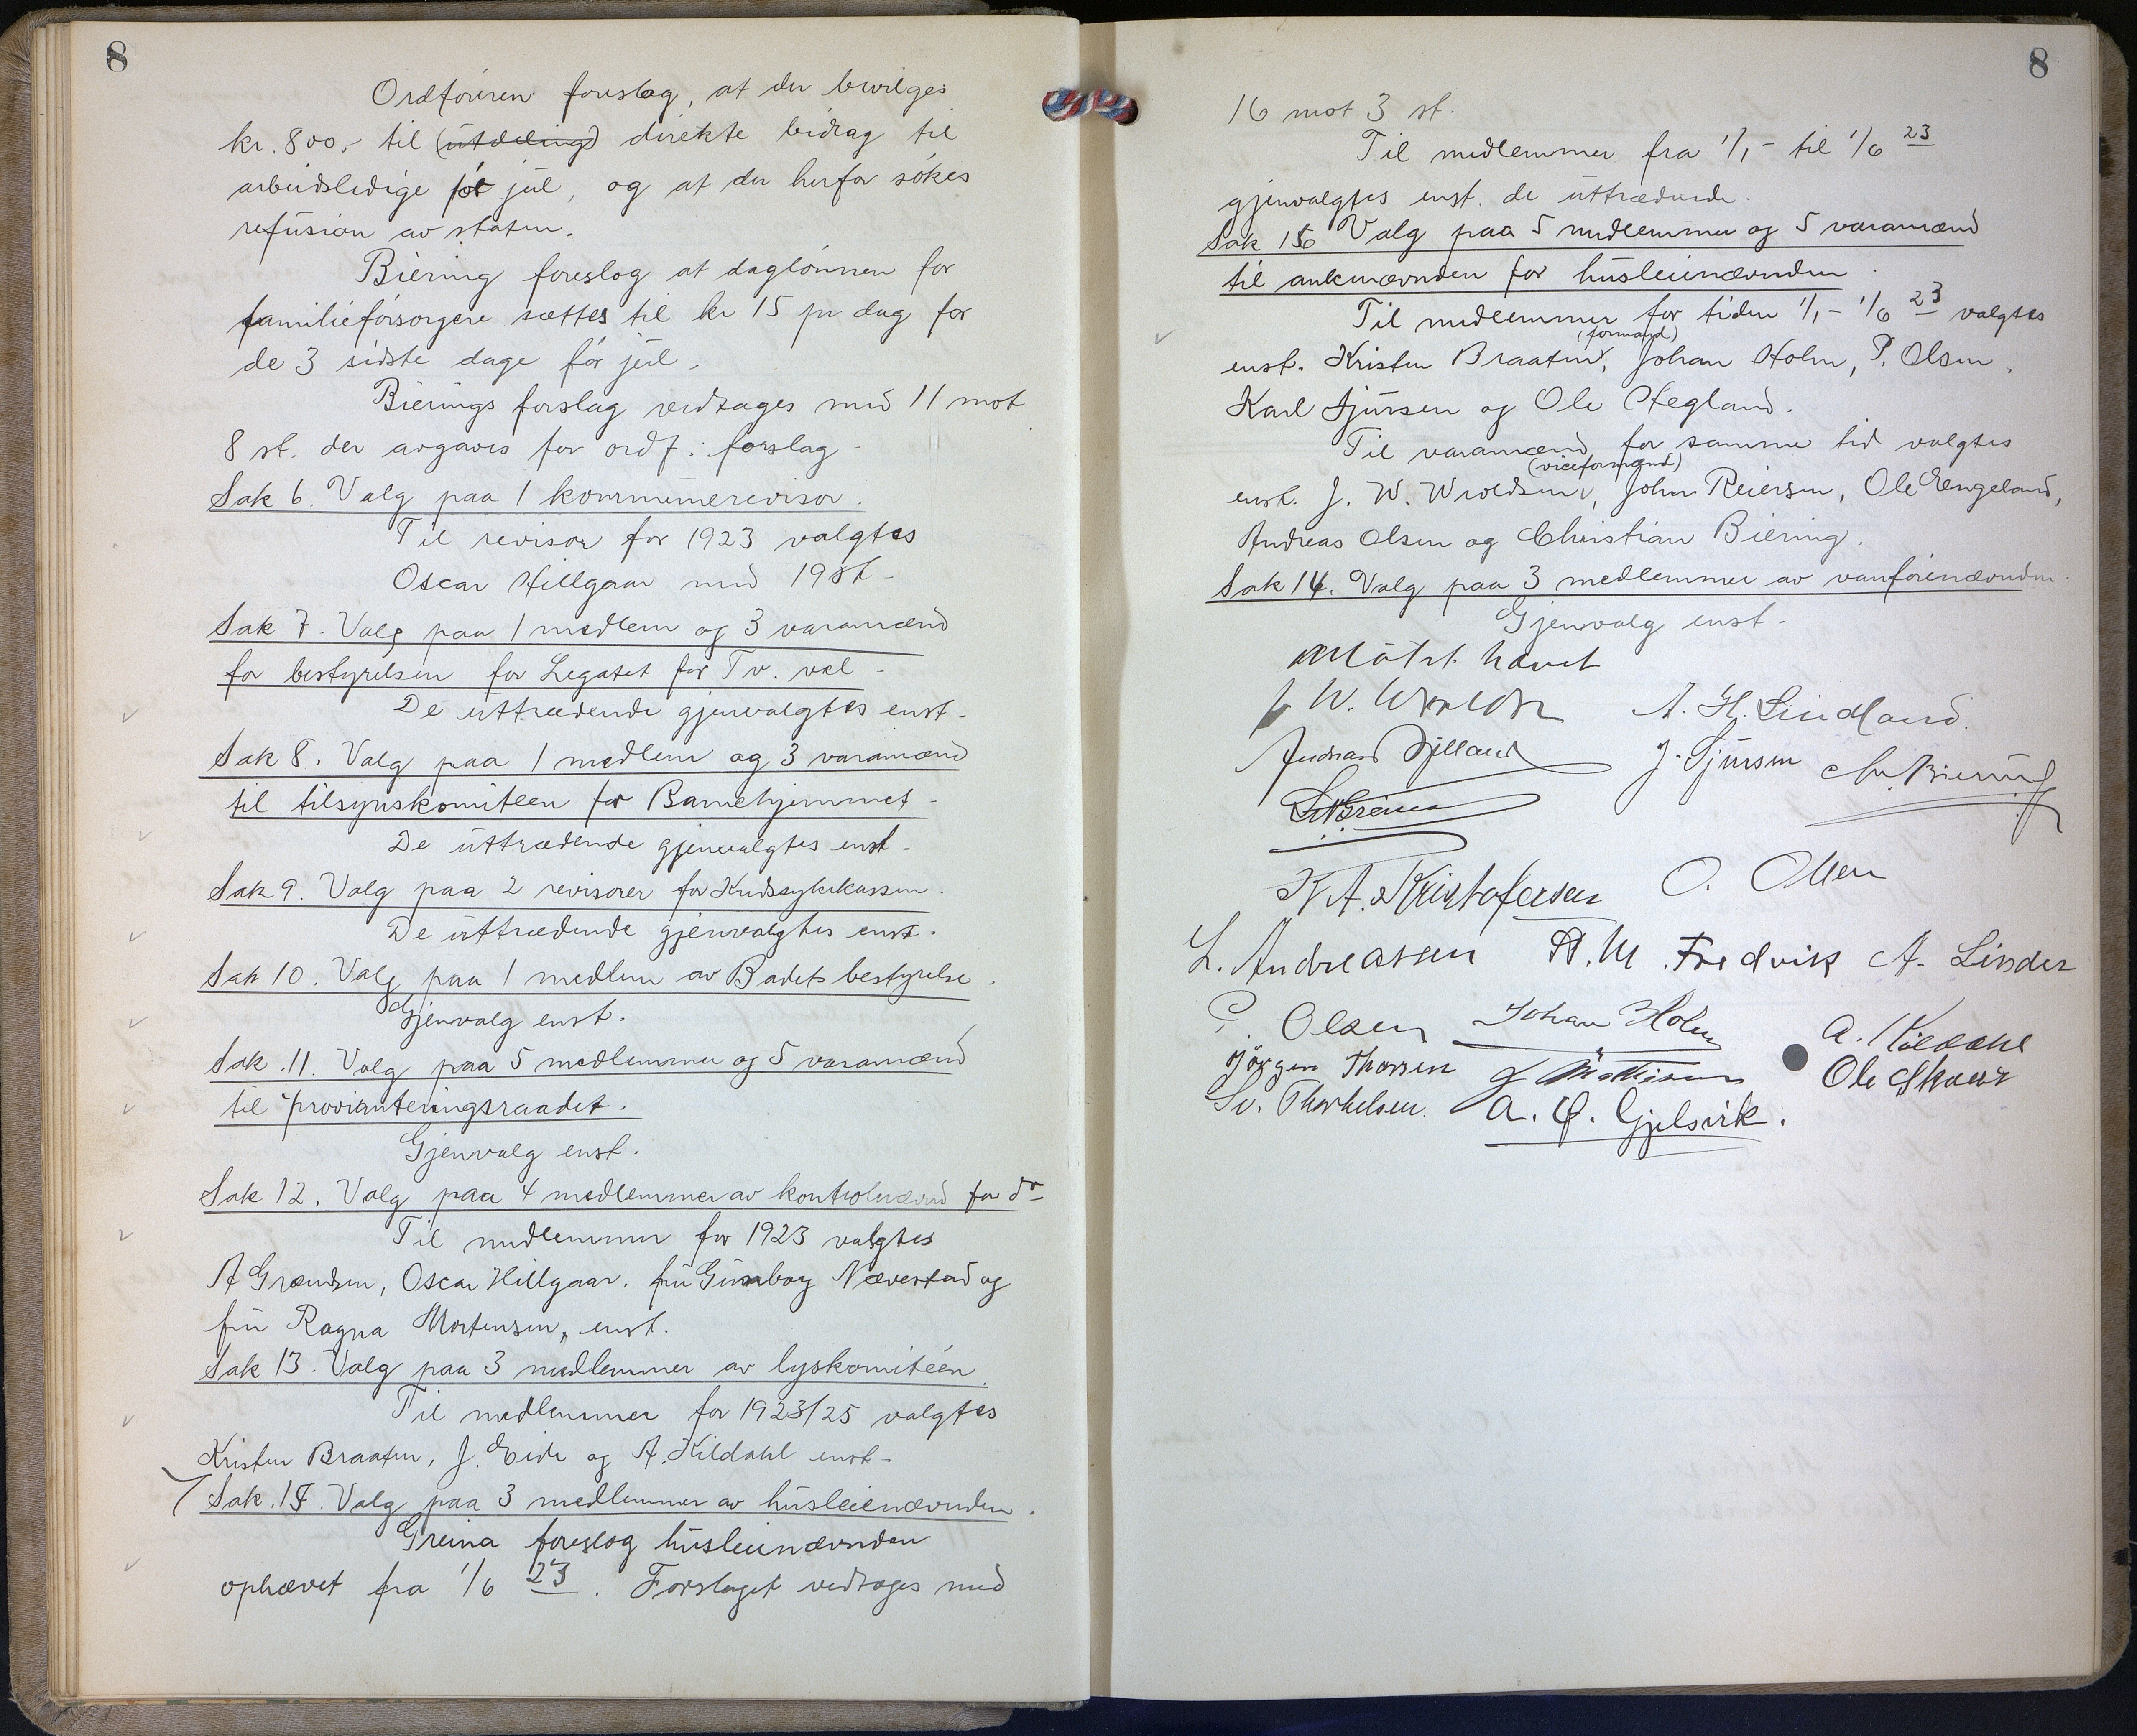 8
Ordføreren foreslog, at der bevilges
kr. 800,- til (utdeling) direkte bidrag til
arbeidsledige før jul, og at der herfor søkes
refusion av staten.
Biering foreslog at daglønnen for
familieforsørgere sættes til kr 15 pr dag for
de 3 sidste dage før jul.
Bierings forslag vedtages med 11 mot
8 st. der avgaves for ordf: forslag.
Sak 6. Valg paa 1 kommunerevisor.
Til revisor for 1923 valgtes
Oscar Hillgaar med 19 st.
Sak 7. Valg paa 1 medlem og 3 varamænd
for bestyrelsen for Legatet for Tv. vel.
De uttrædende gjenvalgtes enst.
Sak 8. Valg paa 1 medlem og 3 varamænd
til tilsynskomiteen for Barnehjemmet.
De uttrædende gjenvalgtes enst.
Sak 9. Valg paa 2 revisorer for Kredssykekassen.
De uttrædende gjenvalgtes enst.
Sak 10. Valg paa 1 medlem av Badets bestyrelse.
Gjenvalg enst.
Sak 11. Valg paa 5 medlemmer og 5 varamænd
til provianteringsraadet.
Gjenvalg enst.
Sak 12. Valg paa 4 medlemmer av kontrolnævnd for do
Til medlemmer for 1923 valgtes
A Grændsen, Oscar Hillgaar, fru Gunborg Næverstad og
fru Ragna Mortensen, enst.
Sak 13. Valg paa 3 medlemmer av lyskomitéen.
Til medlemmer for 1923/25 valgtes
Kristen Braaten, J. Eide og A. Kildahl enst.
Sak. 15. Valg paa 3 medlemmer av husleienævnden.
Greina foreslog husleienævnden
ophævet fra 1/6 23. Forslaget vedtages med
8
16 mot 3 st.
Til medlemmer fra 1/1- til 1/6 23
gjenvalgtes enst. de uttrædende.
Sak 16 Valg paa 5 medlemmer og 5 varamænd
til ankenævnden for husleienævnden.
Til medlemmer for tiden 1/1- 1/6 23 valgtes
(formand)
enst. Kristen Braaten, Johan Holm, P. Olsen,
Karl Sjursen og Ole Hegland.
Til varamænd for samme tid valgtes
(viceformand)
enst. J. W. Wroldsen, John Reiersen, Ole Engeland,
Andreas Olsen og Christian Biering.
Sak 14. Valg paa 3 medlemmer av vanførenævnden.
Gjenvalg enst.
Møtet hævet
J W. Wroldsen A. H. Lindland.
Andreas J. Sjursen Chr. Biering
Greina
K A. Kristofersen O. Olsen
L. Andreassen A. M. Fredvik A. Linder
P. Olsen Johan Holm A. Kildahl
Jørgen Thorsen J Mathisen Ole Skaar
Sv. Thorkelsen. A. O. Gjelsvik.